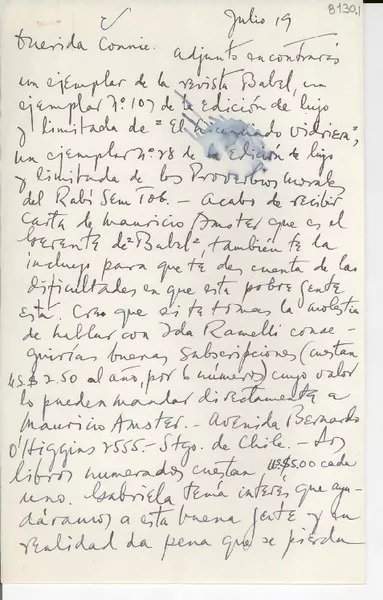 8130.1
Julio 19
Querida Connie. Adjunto encontrarás
un ejemplar de la revista Babel, un
ejemplar nº. 107 de la edición de lujo
y limitada de "El Licenciado Vidriera",
un ejemplar nº. 28 de la edición de lujo
y limitada de los Proverbios Morales
del Rabí Sem Tob. - Acabo de recibir
carta de Mauricio Amster que es el
Gerente de "Babel", también te la
incluyo para que te des cuenta de las
dificultades en que esta pobre gente
está. Creo que si te tomas la molestia
de hablar con Ida Ramelli conse-
guirías buenas subscripciones (cuestan
US.$ 2.50 al año, por 6 números) cuyo valor
lo pueden mandar directamente a
Mauricio Amster. - Avenida Bernardo
O'Higgins 2555. - Stgo. de Chile. - Los
libros numerados cuestan U.$5.00 cada
uno. Gabriela tenía interés que ayu-
dáramos a esta buena gente y en
realidad da pena que se pierda